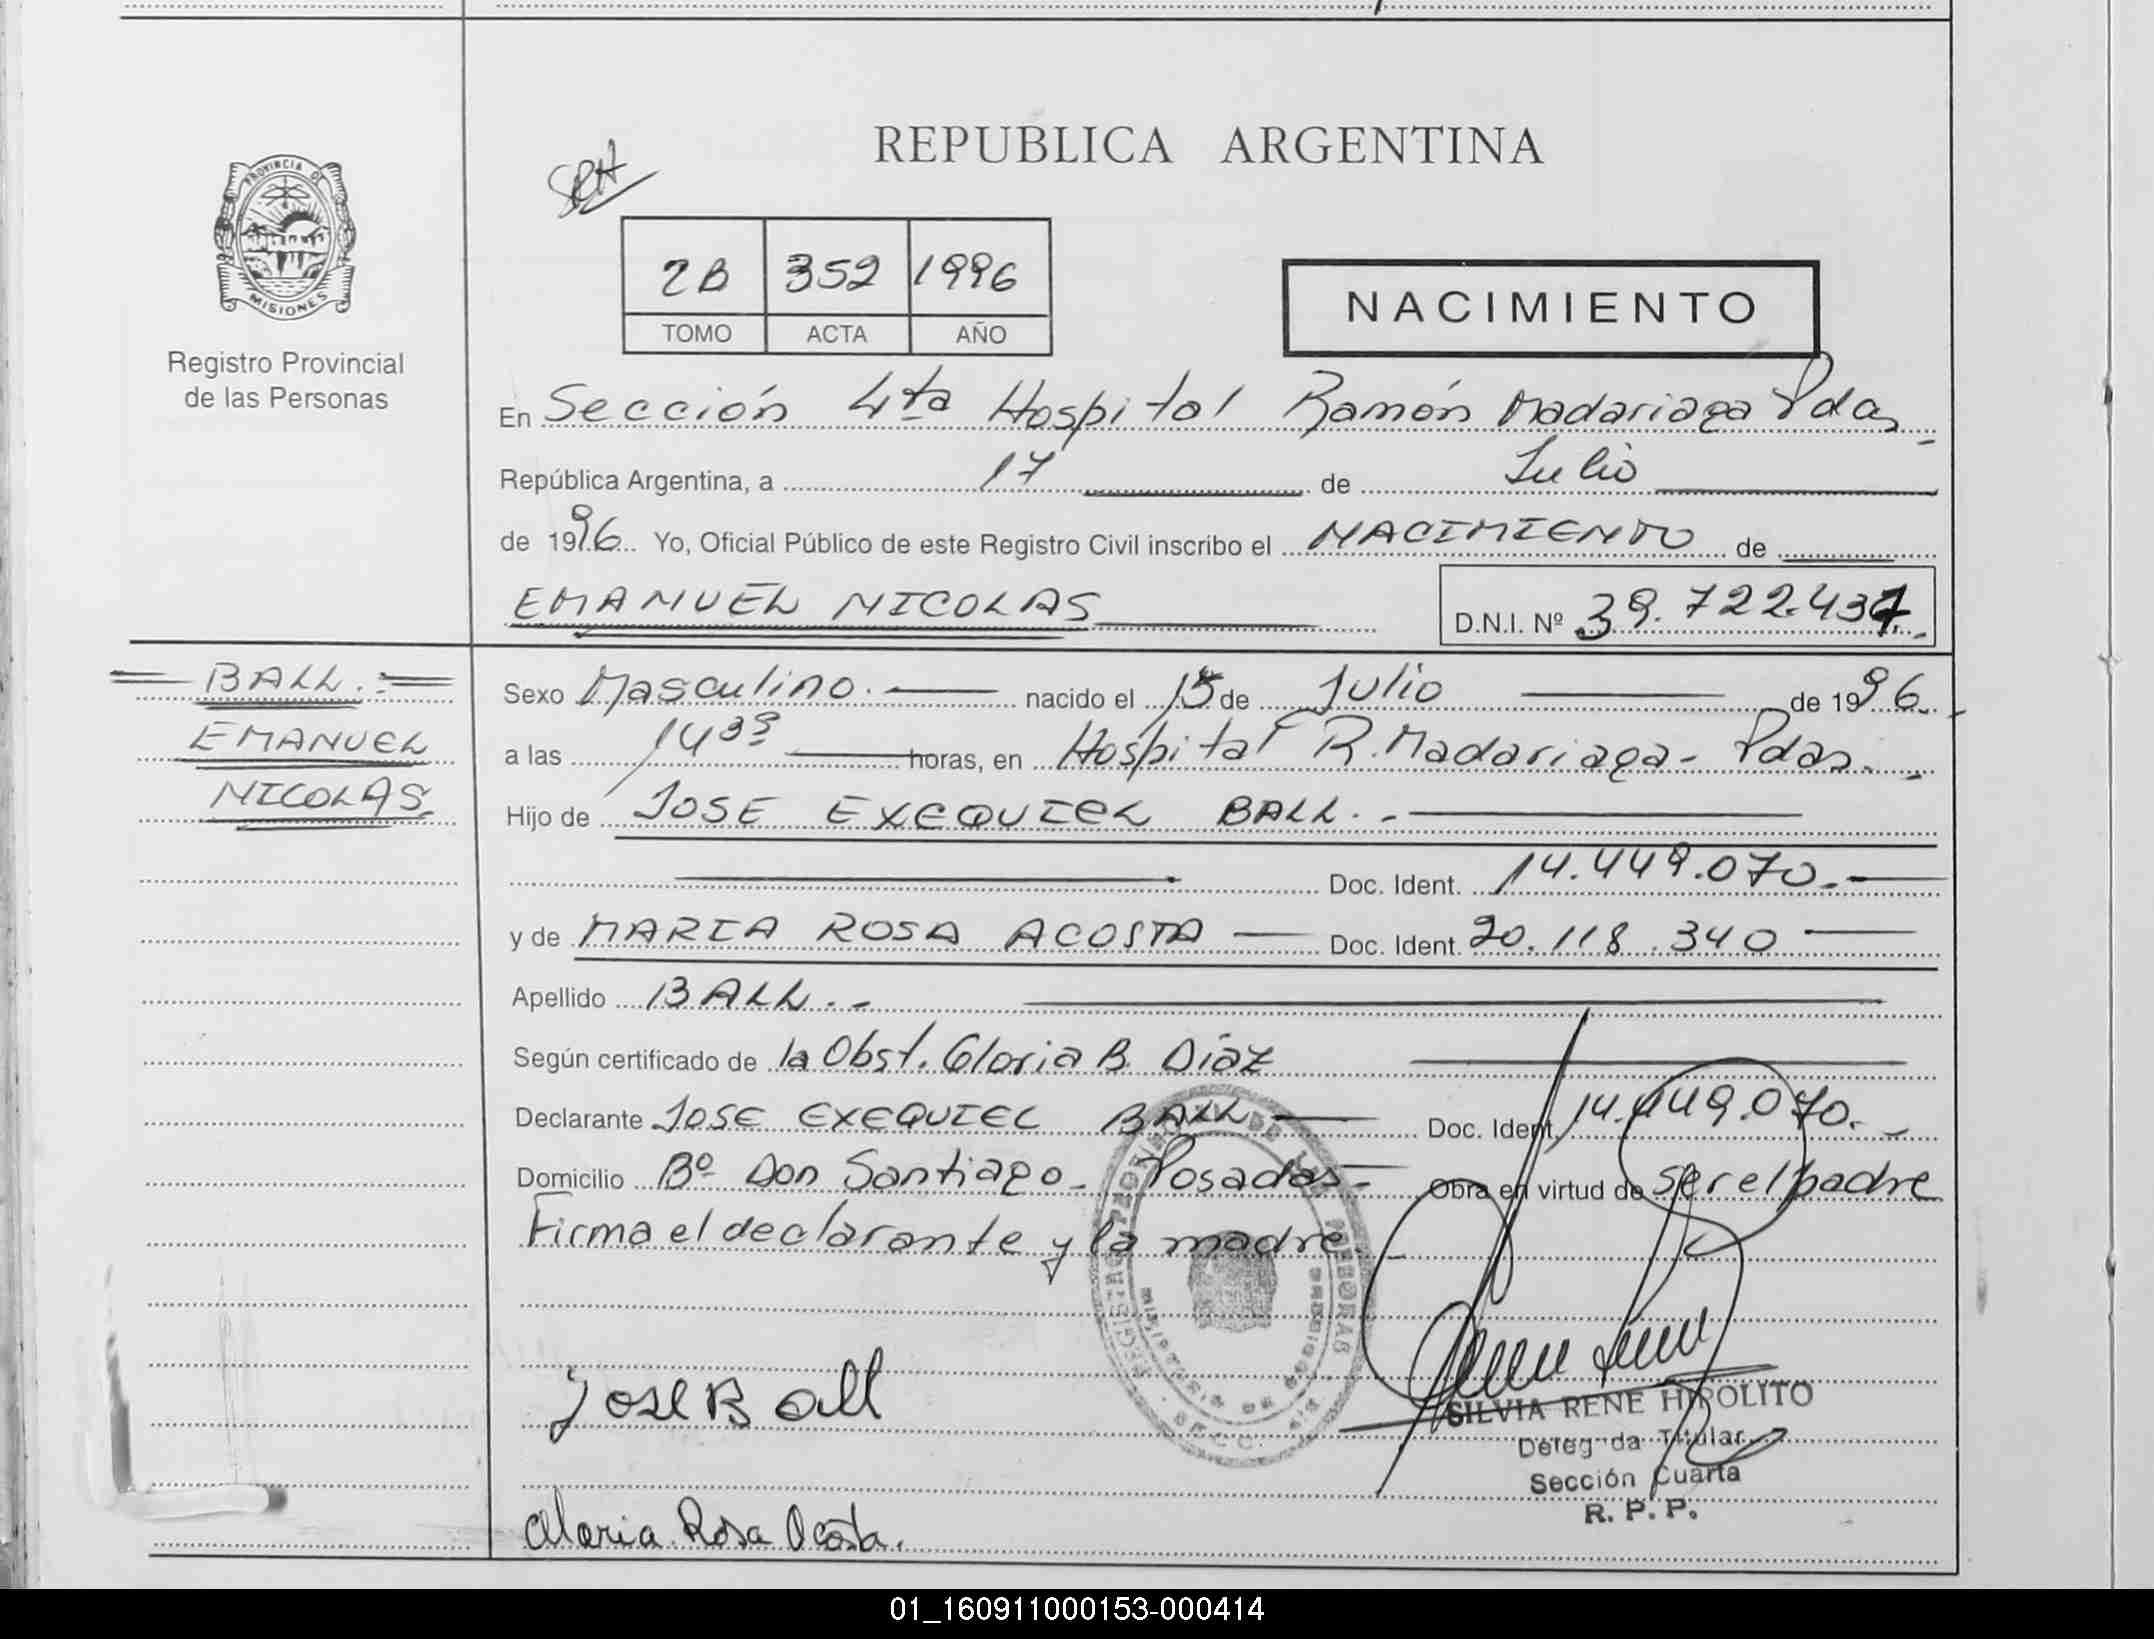 REPUBLICA ARGENTINA
SRH
2B 352 1996
TOMO ACTA AÑO
NACIMIENTO
PROVINCIA DE
MISIONES
Registro Provincial
de las Personas
En Sección 4ta Hospital Ramón Madariaga Pdas
República Argentina, a 17 de Julio
de 1996 Yo, Oficial Público de este Registro Civil inscribo el NACIMIENTO de
EMANUEL NICOLAS
D.N.I. Nº 39.722.437.-
BALL.
EMANUEL
NICOLAS
Sexo Masculino. nacido el 15 de Julio de 1996.
a las horas, en Hospital R. Madariaga - Pdas.-
Hijo de JOSE EXEQUIEL BALL.-
Doc. Ident. 14.449.070.-
y de MARIA ROSA ACOSTA Doc. Ident. 20.118.340
Apellido BALL.-
Según certificado de la Obst. Gloria B. Díaz
Declarante JOSE EXEQUIEL BALL Doc. Ident. 14.449.070.-
Domicilio Bº Don Santiago - Posadas - Obra en virtud de ser el padre
Firma el declarante y la madre.-
Jose Ball
SILVIA RENE HIPOLITO
Deleg da Titular
Sección Cuarta
R. P. P.
Maria Rosa Acosta.
01_160911000153-000414